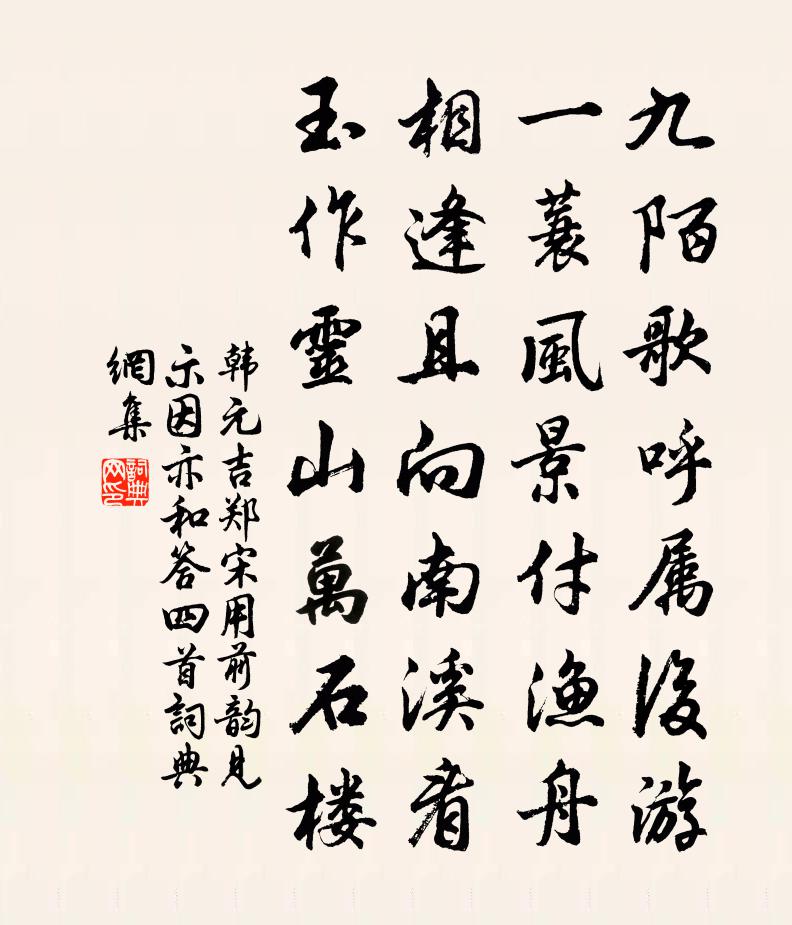 九陌歌呼属後游
一蓑風景付漁舟
相逢且向南溪看
玉作靈山萬石楼
韩元吉郑宋用前韵见
示因亦和答四首詞典
網集
詞典
网印